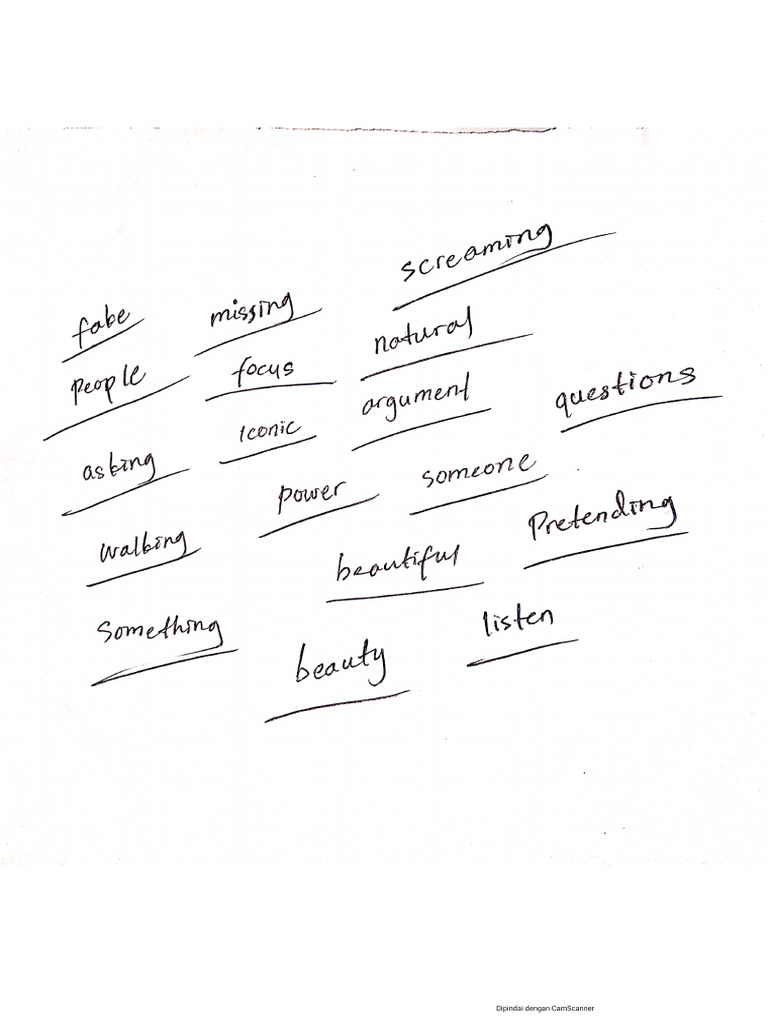 screaming
fake missing
natural
people focus
argument questions
iconic
asking someone
power
walking Pretending
beautiful
Something listen
beauty
Dipindai dengan CamScanner